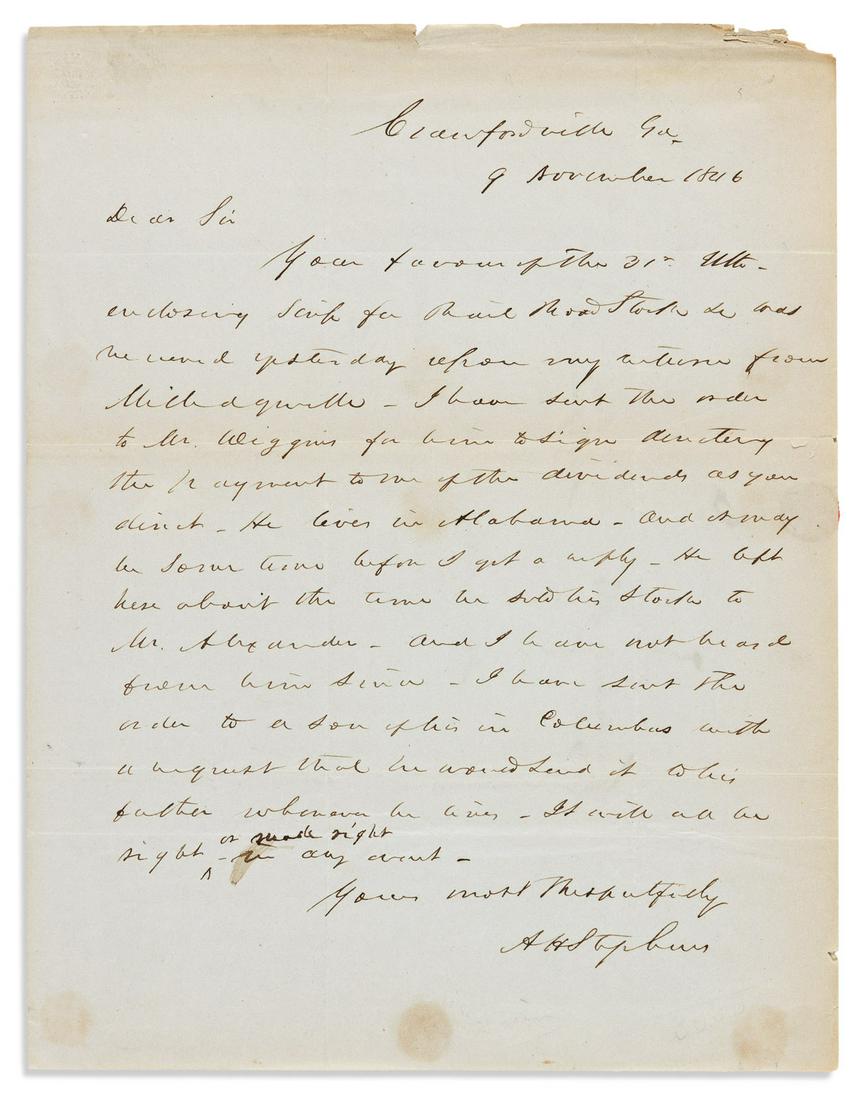 Crawfordville Ga
9 November 1846
Dear Sir
Your favour of the 31st Ulto-
enclosing Scrip for Rail Road Stock &c was
received yesterday upon my return from
Milledgeville - I have sent the order
to Mr. Wiggins for him to sign directing
the payment to me of the dividends as you
direct - He lives in Alabama - And it may
be some time before I get a reply - He left
here about the time he sold his Stock to
Mr. Alexander - And I have not heard
from him since - I have sent the
order to a son of his in Columbus with
a request that he would send it to his
father wherever he lives - It will all be
right ^ or made right - in any event -
Yours most Respectfully
A H Stephens